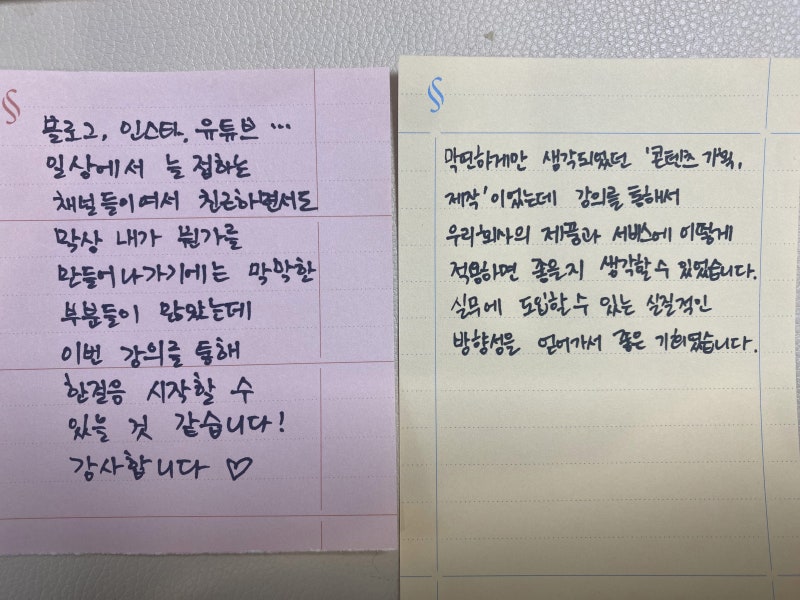 블로그, 인스타, 유튜브 …
일상에서 늘 접하는
채널들이여서 친근하면서도
막상 내가 뭔가를
만들어나가기에는 막막한
부분들이 많았는데
이번 강의를 통해
한걸음 시작할 수
있을 것 같습니다!
감사합니다 ♡
막연하게만 생각되었던 '콘텐츠 기획,
제작'이었는데 강의를 통해서
우리회사의 제품과 서비스에 어떻게
적용하면 좋을지 생각할 수 있었습니다.
실무에 도입할 수 있는 실질적인
방향성을 얻어가서 좋은 기회였습니다.